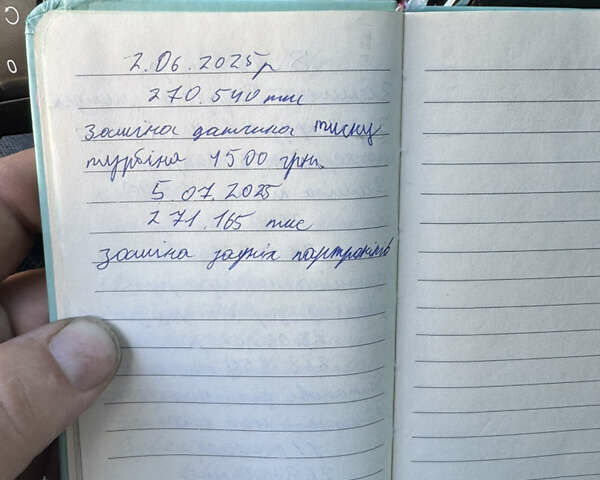 2.06.2025р
270.540 тис
заміна датчика тиску
турбіна 1500 грн.
5.07.2025
271.165 тис
заміна задніх